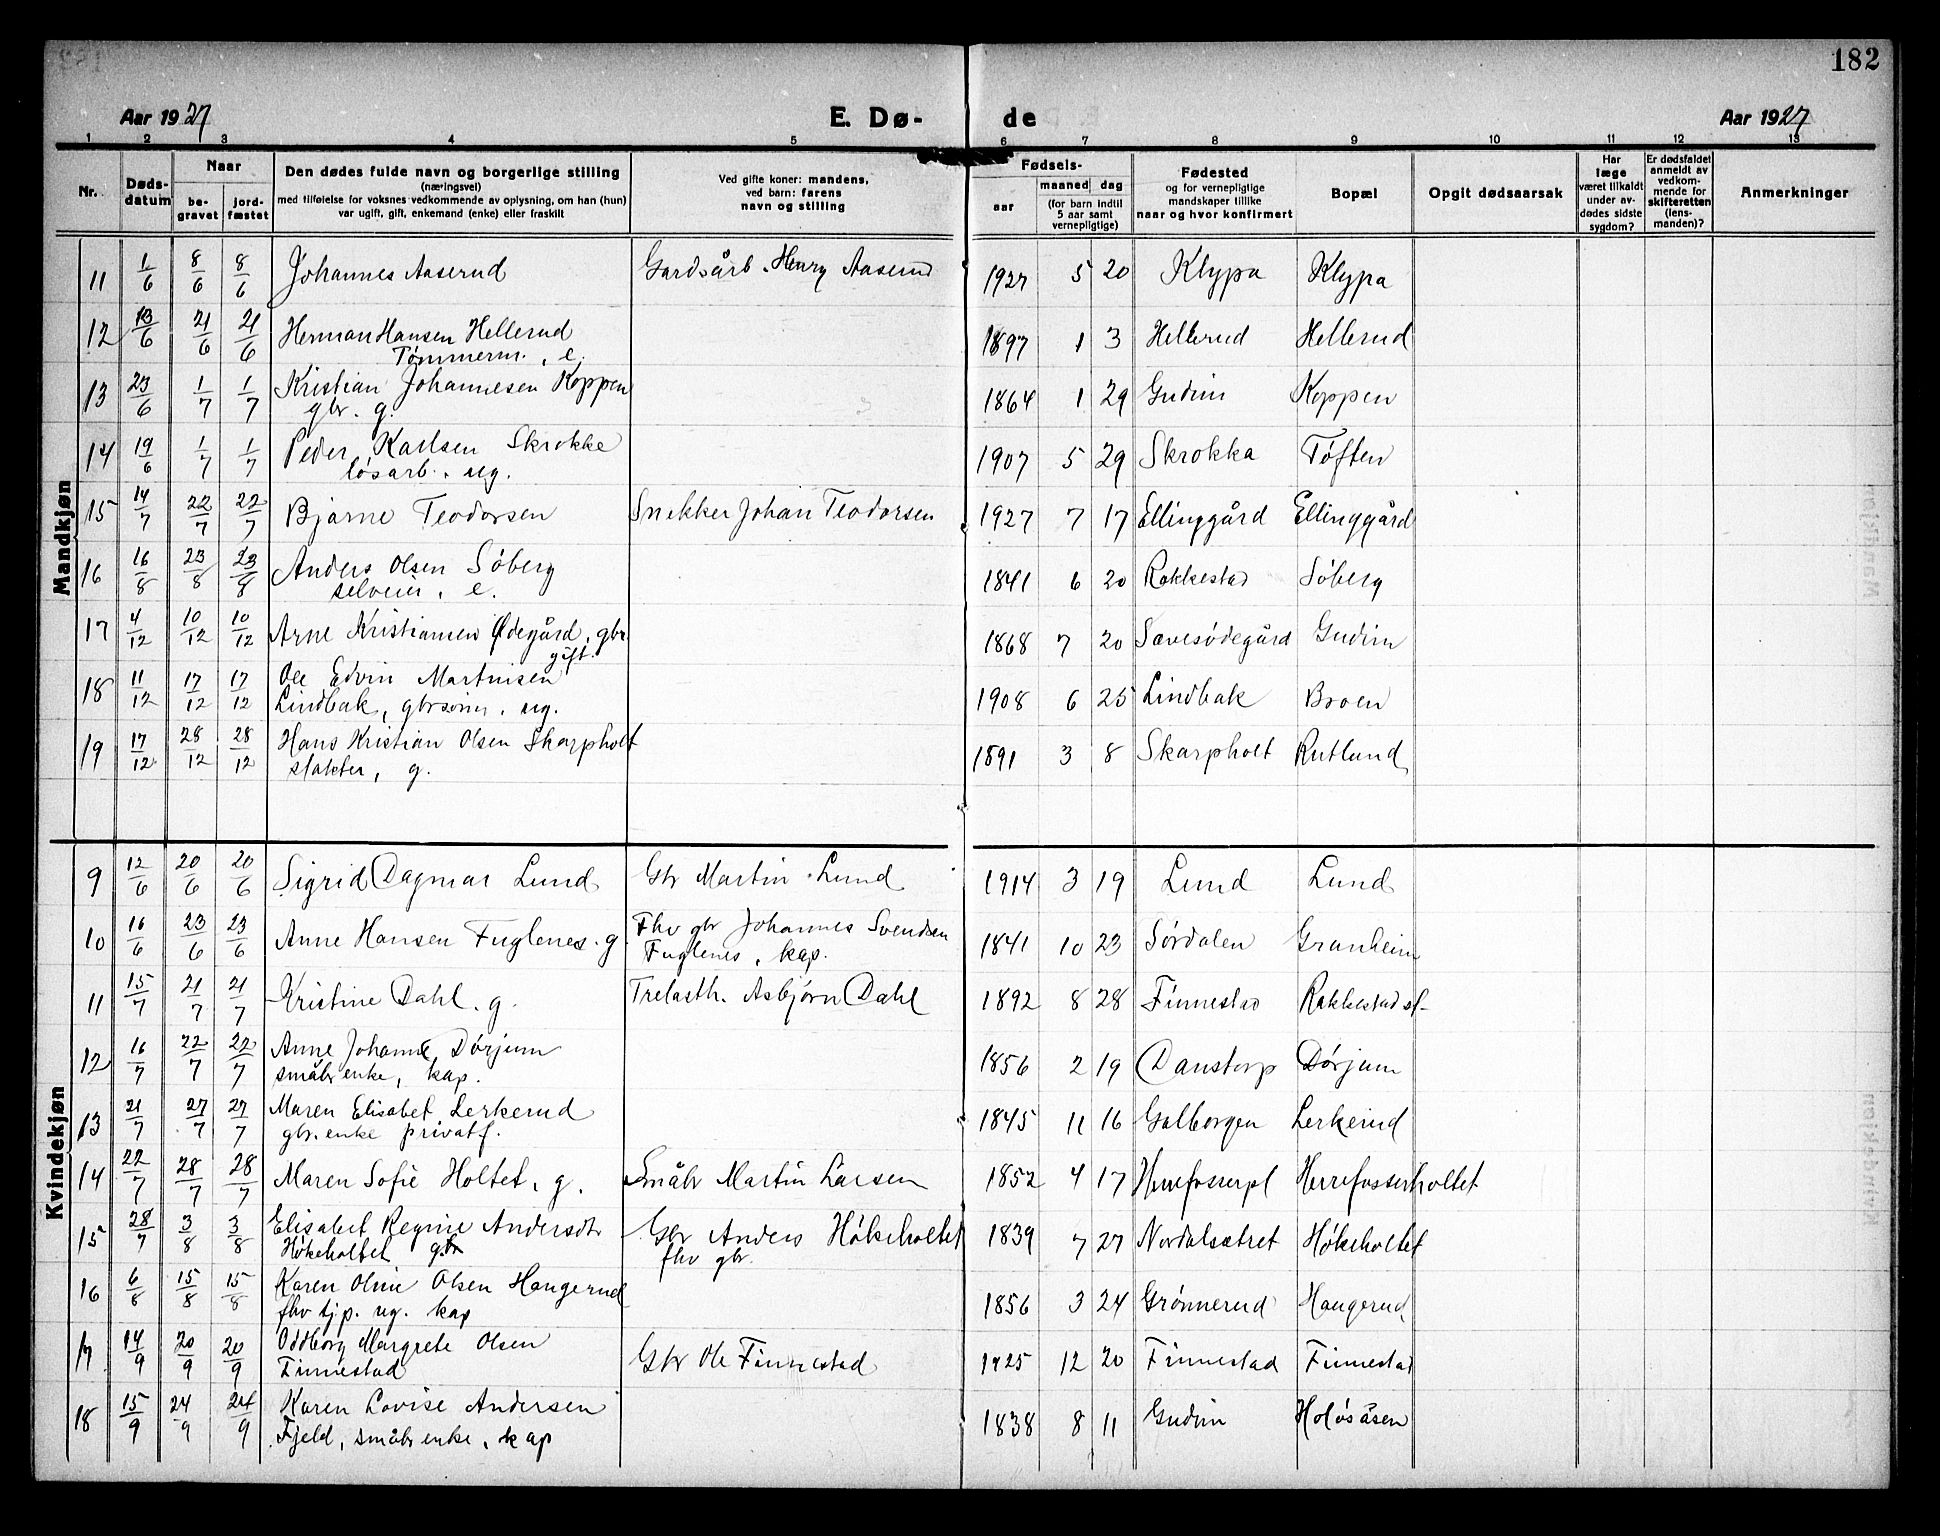 182
Aar 1927 E. Dø- de Aar 1927
1 2 3 4 5 6 7 8 9 10 11 12 13
Nr. Dødsdatum Naar begravet jordfæstet Den dødes fulde navn og borgerlige stilling (næringsvei) med tilføielse for voksnes vedkommende av oplysning, om han (hun) var ugift, gift, enkemand (enke) eller fraskilt Ved gifte koner: mandens, ved barn: farens navn og stilling Fødsels- aar maaned dag (for barn indtil 5 aar samt vernepligtige) Fødested og for vernepligtige mandskaper tillike naar og hvor konfirmert Bopæl Opgit dødsaarsak Har læge været tilkaldt under avdødes sidste sygdom? Er dødsfaldet anmeldt av vedkommende for skifteretten (lensmanden)? Anmerkninger
Mandkjøn
11 1/6 8/6 8/6 Johannes Aaserud Gardsårb. Henry Aaserud 1927 5 20 Klypa Klypa
12 13/6 21/6 21/6 Herman Hansen Hellerud 1897 1 3 Hellerud Hellerud
Tømmerm., e.
13 23/6 1/7 1/7 Kristian Johannesen Koppen 1864 1 29 Gudim Koppen
gbr. g.
14 19/6 1/7 1/7 Peder Karlsen Skrokke 1907 5 29 Skrokka Tøften
løsarb. ug.
15 14/7 22/7 22/7 Bjarne Teodorsen Snekker Johan Teodorsen 1927 7 17 Ellinggård Ellinggård
16 16/8 23/8 23/8 Anders Olsen Søberg 1841 6 20 Rakkestad Søberg
selveier, e.
17 4/12 10/12 10/12 Arne Kristiansen Ødegård, gbr. 1868 7 20 Sævesødegård Gudim
gift.
18 11/12 17/12 17/12 Ole Edvin Martinisen 1908 6 25 Lindbak Broen
Lindbak, gbrsønn, ug.
19 17/12 28/12 28/12 Hans Kristian Olsen Skarpholt 1891 3 8 Skarpholt Rutlund
slakter, g.
Kvindekjøn
9 12/6 20/6 20/6 Sigrid Dagmar Lund Gbr Martin Lund 1914 3 19 Lund Lund
10 16/6 23/6 23/6 Anne Hansen Fuglenes. g. Fhv gbr Johannes Svendsen 1841 10 23 Sørdalen Granheim
Fuglenes, kap.
11 15/7 21/7 21/7 Kristine Dahl. g. Trelasth. Asbjørn Dahl 1892 8 28 Finnestad Rakkestad st.
12 16/7 22/7 22/7 Anne Johanne Dørjum 1856 2 19 Danstorp Dørjum
småbr enke, kap.
13 21/7 27/7 27/7 Maren Elisabet Lerkerud 1845 11 16 Galborgen Lerkerud
gbr. enke privatf.
14 22/7 28/7 28/7 Maren Sofie Holtet, g. Småbr Martin Larsen 1852 4 17 Herrefosserpl Herrefosserholtet
15 28/7 3/8 3/8 Elisabet Regine Andersdtr Gbr Anders Høkeholtet 1839 7 27 Nordalsætret Høkeholtet
Høkeholtet fhv gbr.
16 6/8 15/8 15/8 Karen Oline Olsen Haugerud 1856 3 24 Grønnerud Haugerud
fhv tjp. ug. kap
17 14/9 20/9 20/9 Oddborg Margrete Olsen Gbr Ole Finnestad 1925 12 20 Finnestad Finnestad
Finnestad
18 15/9 24/9 24/9 Karen Lovise Andersen 1838 8 11 Gudim Holøsåsen
Fjeld, småbr enke, kap